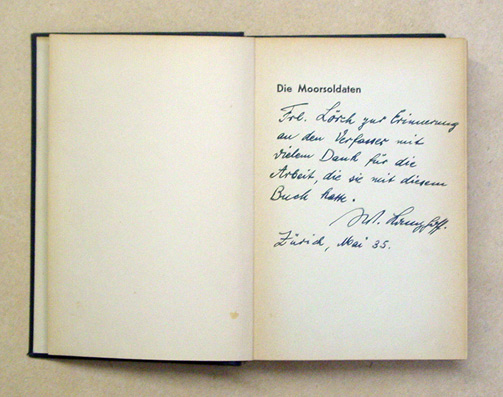 Die Moorsoldaten
Frl. Lörch zur Erinnerung
an den Verfasser mit
vielem Dank für die
Arbeit, die sie mit diesem
Buch hatte.
W. Langhoff.
Zürich, Mai 35.